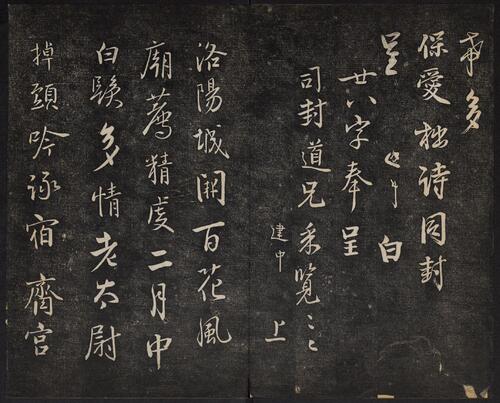 希多
保愛拙詩同封
呈 白
廿八字奉呈
司封道兄采覽〻〻
建中 上
洛陽城開百花風
廟薦精虔二月中
白髮多情老太尉
掉頭吟詠宿齋宮